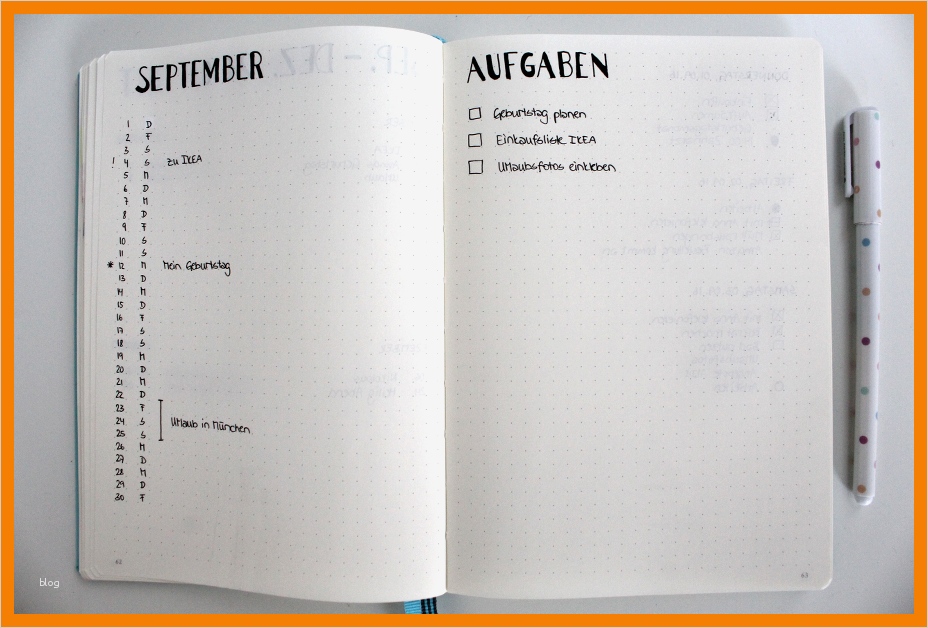 SEPTEMBER
1 D
2 F
3 S
! 4 S zu IKEA
5 M
6 D
7 M
8 D
9 F
10 S
11 S
* 12 M Mein Geburtstag
13 D
14 M
15 D
16 F
17 S
18 S
19 M
20 D
21 M
22 D
23 F
24 S Urlaub in München
25 S
26 M
27 D
28 M
29 D
30 F
62
AUFGABEN
Geburtstag planen
Einkaufsliste IKEA
Urlaubsfotos einkleben
63
blog